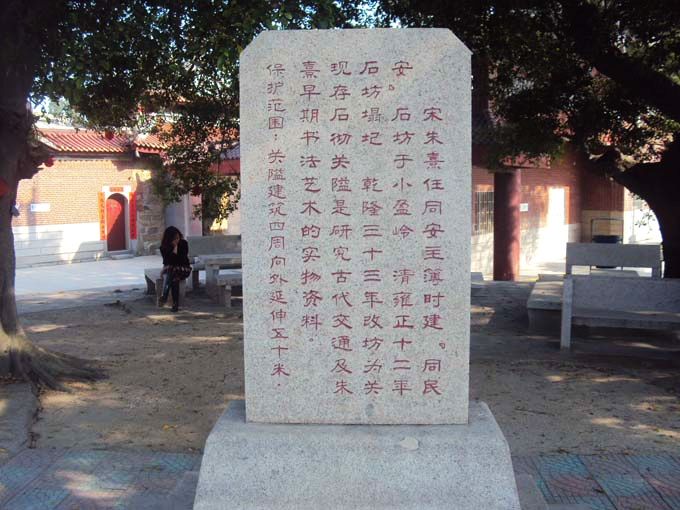 宋朱熹任同安主簿时建。同民
安。石坊于小盈岭 清雍正十二年
石坊塌圮 乾隆三十三年改坊为关
现存石彻关隘是研究古代交通及朱
熹早期书法艺术的实物资料。
保护范围：关隘建筑四周向外延伸五十米.